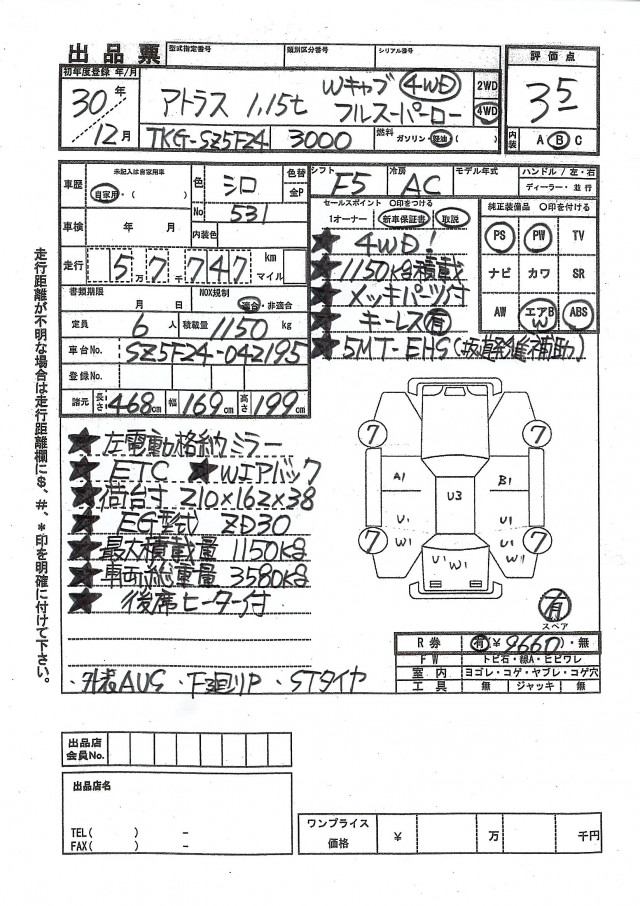 出品票 型式指定番号 類別区分番号 シリアル番号
評価点
3.5
内装 A B C
初年度登録 年/月
30年 12月
アトラス 1.15t Wキャブ 4WD
フルスーパーロー
2WD
4WD
TKG-SZ5F24 3000 燃料 ガソリン・軽油・( )
車歴 未記入は自家用車
自家用・( )
色 シロ 色替 全P
No 531
内装色
車検 年 月
走行 57747 万 千 km マイル
書類期限 月 日 NOX規制 適合・非適合
定員 6人 積載量 1150kg
車台No. SZ5F24-042195
登録No.
諸元 長さ 468cm 幅 169cm 高さ 199cm
シフト F5 冷房 AC モデル年式 ハンドル/左・右
ディーラー・並行
セールスポイント ○印をつける
1オーナー 新車保証書 取説
★4WD!
★1150kg積載
★メッキパーツ付
★キーレス有
★5MT-EHS(坂道発進補助)
純正装備品 ○印を付ける
PS PW TV
ナビ カワ SR
AW エアB W ABS
★左電動格納ミラー
★ETC ★Wエアバック
★荷台寸 210×162×38
★EG型式) ZD30
★最大積載量 1150kg
★車両総重量 3580kg
★後席ヒーター付
・STタイヤ
7 7
A1 B1
U3
U1 U1
7 W1 U1 W1 U1 W1 7
有
スペア
R券 有(¥9660)・無
FW トビ石・線A・ヒビワレ
室内 ヨゴレ・コゲ・ヤブレ・コゲ穴
工具 無 ジャッキ 無
走行距離が不明な場合は走行距離欄に$、#、*印を明確に付けて下さい。
出品店
会員No.
出品店名
TEL( ) -
FAX( ) -
ワンプライス
価格 ¥ 万 千円